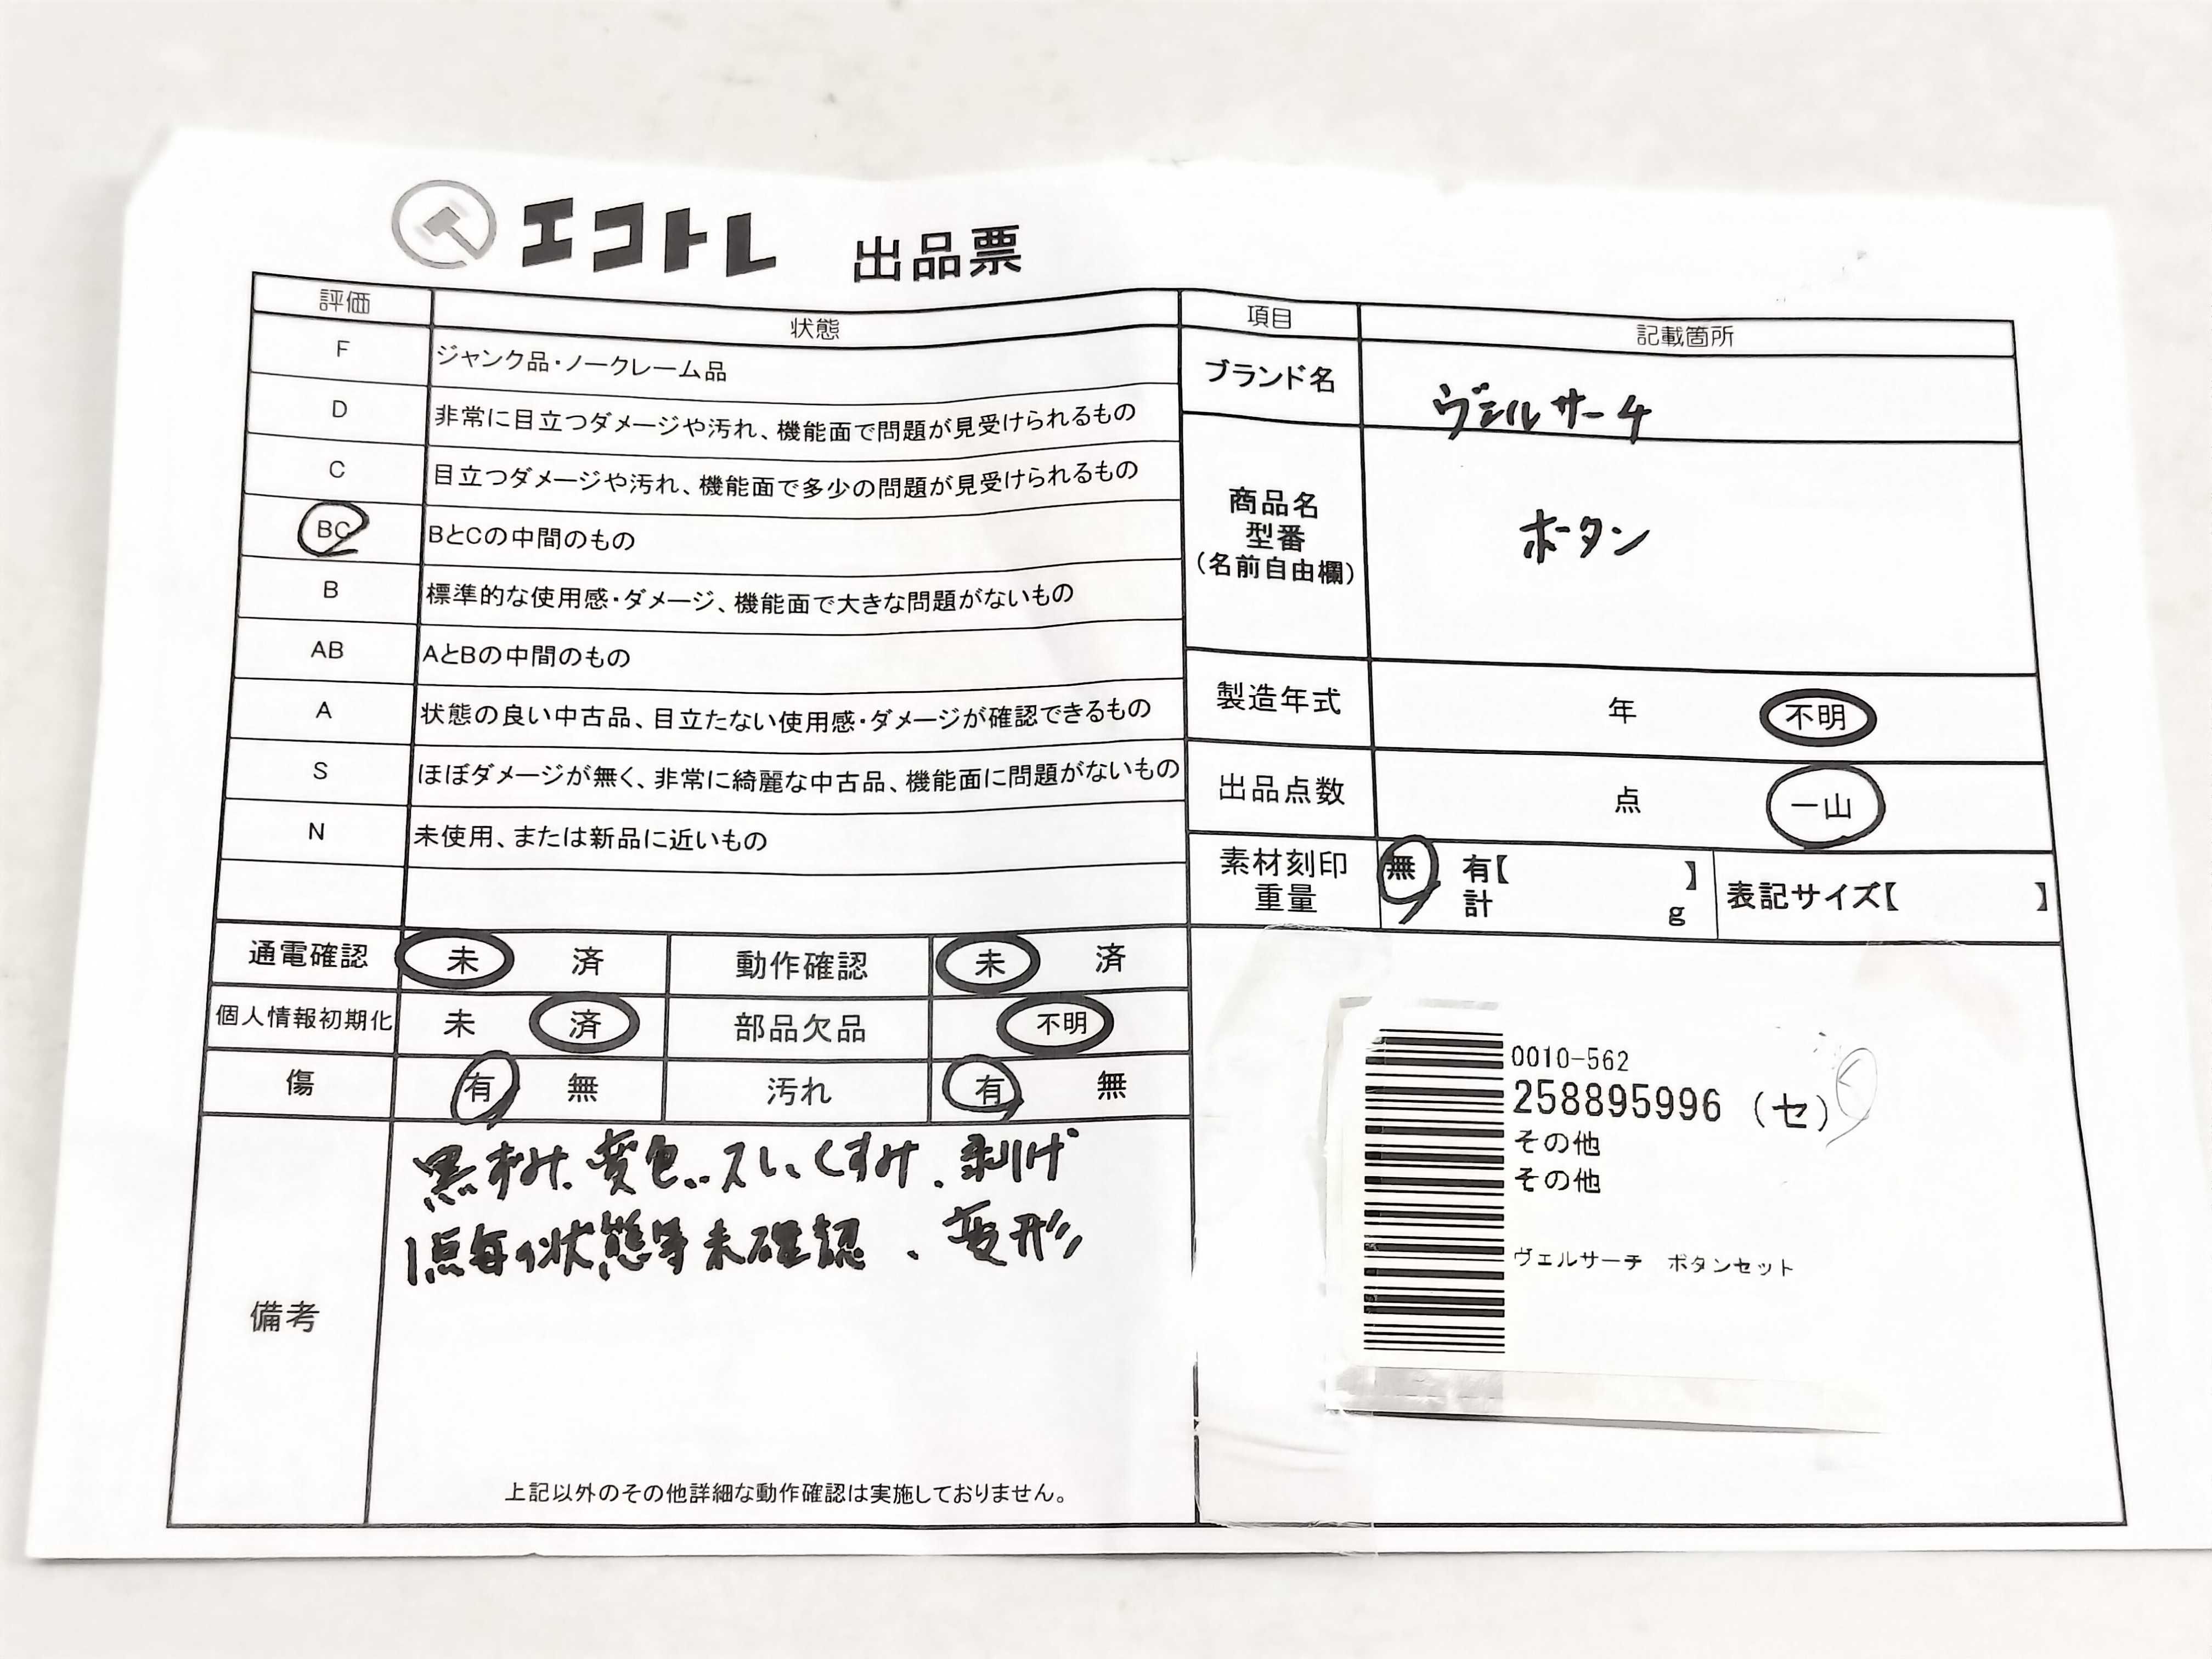 エコトレ 出品票
評価 状態
F ジャンク品・ノークレーム品
D 非常に目立つダメージや汚れ、機能面で問題が見受けられるもの
C 目立つダメージや汚れ、機能面で多少の問題が見受けられるもの
BC BとCの中間のもの
B 標準的な使用感・ダメージ、機能面で大きな問題がないもの
AB AとBの中間のもの
A 状態の良い中古品、目立たない使用感・ダメージが確認できるもの
S ほぼダメージが無く、非常に綺麗な中古品、機能面に問題がないもの
N 未使用、または新品に近いもの
通電確認 未 済 動作確認 未 済
個人情報初期化 未 済 部品欠品 不明
傷 有 無 汚れ 有 無
備考
黒ずみ、変色、スレ、くすみ、剥げ
1点毎の状態等未確認、変形
上記以外のその他詳細な動作確認は実施しておりません。
項目 記載箇所
ブランド名 ヴェルサーチ
商品名
型番
(名前自由欄)
ボタン
製造年式 年 不明
出品点数 点 一山
素材刻印 無 有【 】
重量 計 g
表記サイズ【 】
0010-562
258895996 (セ)
その他
その他
ヴェルサーチ ボタンセット